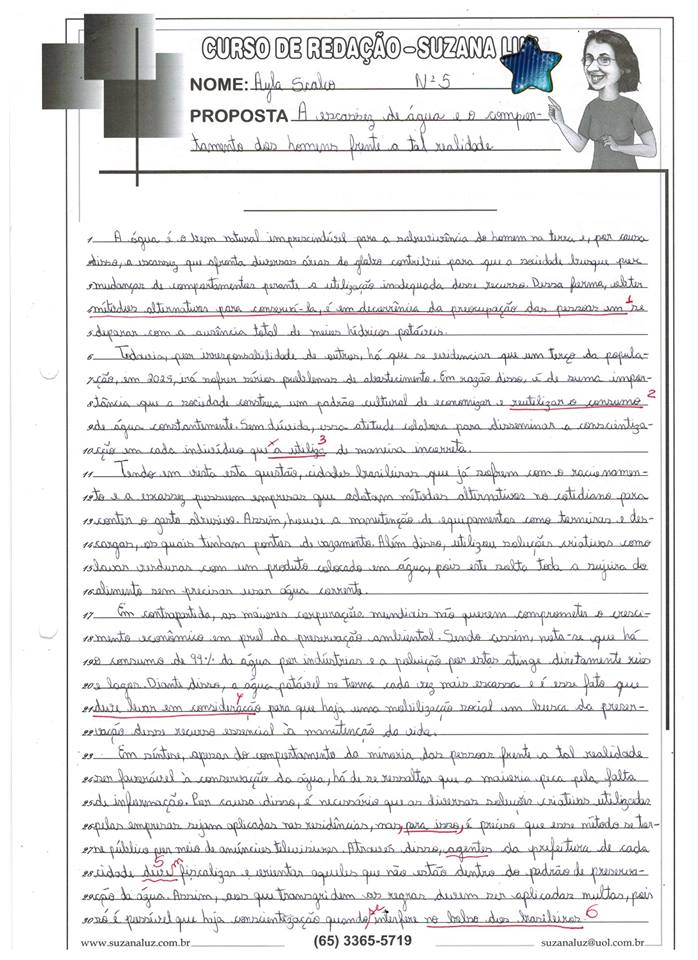 CURSO DE REDAÇÃO – SUZANA LUZ
NOME: Ayla Scalco Nº 5
PROPOSTA A escassez de água e o compor-
tamento dos homens frente a tal realidade
1 A água é o bem natural imprescindível para a sobrevivência do homem na terra e, por causa
2 disso, a escassez que afronta diversas áreas do globo contribui para que a sociedade busque por
3 mudanças de comportamentos perante a utilização inadequada desse recurso. Dessa forma, obter
4 métodos alternativos para conservá-la, é em decorrência da preocupação das pessoas em se 1
5 deparar com a ausência total de meios hídricos potáveis.
6 Todavia, por irresponsabilidade de outros, há que se evidenciar que um terço da popula-
7 ção, em 2025, irá sofrer sérios problemas de abastecimento. Em razão disso, é de suma impor-
8 tância que a sociedade construa um padrão cultural de economizar e reutilizar o consumo 2
9 de água constantemente. Sem dúvida, essa atitude colabora para disseminar a conscientiza-
10 ção em cada indivíduo que a utiliza 3 de maneira incorreta.
11 Tendo em vista esta questão, cidades brasileiras que já sofrem com o racionamen-
12 to e a escassez possuem empresas que adotam métodos alternativos no cotidiano para
13 conter o gasto abusivo. Assim, houve a manutenção de equipamentos como torneiras e des-
14 cargas, os quais tinham pontos de vazamento. Além disso, utilizou soluções criativas como
15 lavar verduras com um produto colocado em água, pois este solta toda a sujeira do
16 alimento sem precisar usar água corrente.
17 Em contrapartida, as maiores corporações mundiais não querem comprometer o cresci-
18 mento econômico em prol da preservação ambiental. Sendo assim, nota-se que há
19 o consumo de 99% da água por indústrias e a poluição por estas atinge diretamente rios
20 e lagos. Diante disso, a água potável se torna cada vez mais escassa e é esse fato que
21 deve levar em consideração 4 para que haja uma mobilização social em busca da preser-
22 vação desse recurso essencial à manutenção da vida.
23 Em síntese, apesar do comportamento da minoria das pessoas frente a tal realidade
24 ser favorável à conservação da água, há de se ressaltar que a maioria peca pela falta
25 de informação. Por causa disso, é necessário que as diversas soluções criativas utilizadas
26 pelas empresas sejam aplicadas nas residências, mas, para isso, é preciso que esse método se tor-
27 ne público por meio de anúncios televisivos. Através disso, agentes da prefeitura de cada
28 cidade deve 5 m fiscalizar e orientar aqueles que não estão dentro do padrão de preserva-
29 ção da água. Assim, aos que transgridem as regras devem ser aplicadas multas, pois
30 só é possível que haja conscientização quando se interfere no bolso dos brasileiros. 6
www.suzanaluz.com.br (65) 3365-5719 suzanaluz@uol.com.br